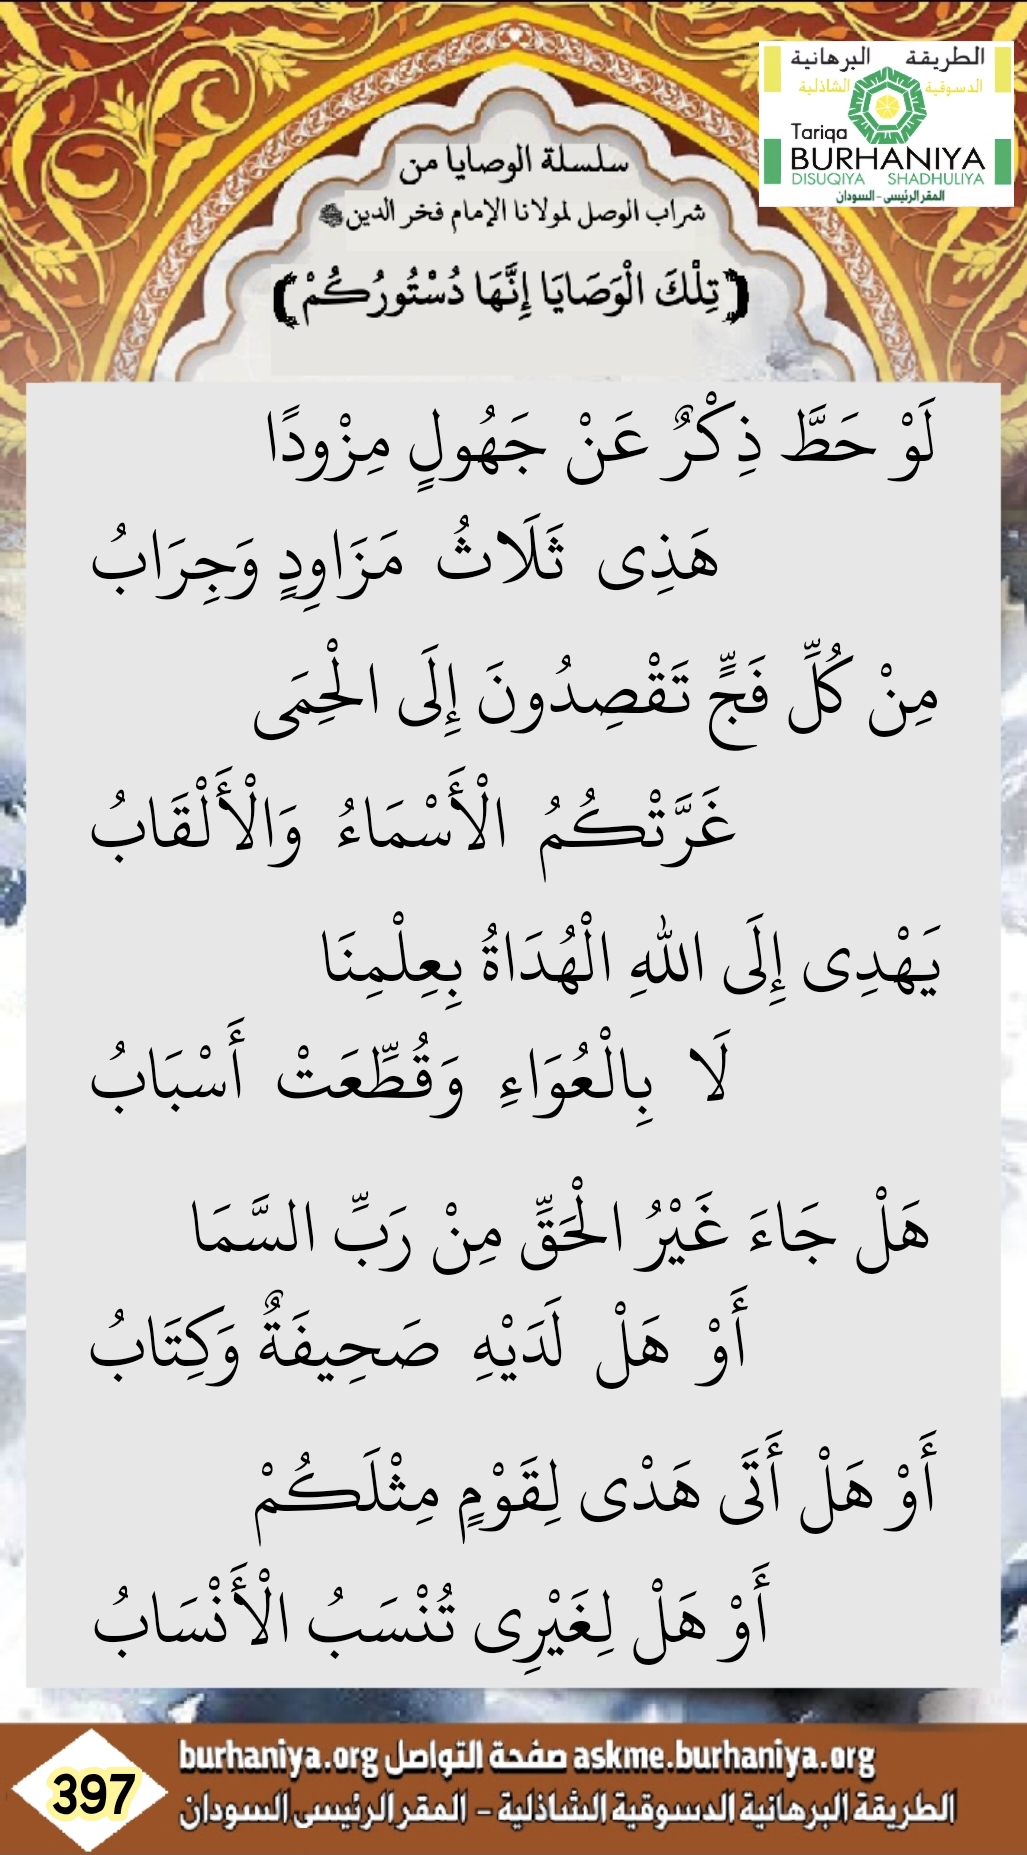 الطريقة البرهانية
الدسوقية الشاذلية
Tariqa
BURHANIYA
DISUQIYA SHADHULIYA
المقر الرئيسى - السودان
سلسلة الوصايا من
شراب الوصل لمولانا الإمام فخر الدين
﴿تِلْكَ الْوَصَايَا إِنَّهَا دُسْتُورُكُمْ﴾
لَوْ حَطَّ ذِكْرٌ عَنْ جَهُولٍ مِزْودًا
هَذِى ثَلَاثُ مَزَاوِدٍ وَجِرَابُ
مِنْ كُلِّ فَجٍّ تَقْصِدُونَ إِلَى الْحِمَى
غَرَّتْكُمُ الْأَسْمَاءُ وَالْأَلْقَابُ
يَهْدِى إِلَى اللهِ الْهُدَاةُ بِعِلْمِنَا
لَا بِالْعُوَاءِ وَقُطِّعَتْ أَسْبَابُ
هَلْ جَاءَ غَيْرُ الْحَقِّ مِنْ رَبِّ السَّمَا
أَوْ هَلْ لَدَيْهِ صَحِيفَةٌ وَكِتَابُ
أَوْ هَلْ أَتَى هَدْى لِقَوْمٍ مِثْلَكُمْ
أَوْ هَلْ لِغَيْرِى تُنْسَبُ الْأَنْسَابُ
397
burhaniya.org صفحة التواصل askme.burhaniya.org
الطريقة البرهانية الدسوقية الشاذلية - المقر الرئيسى السودان